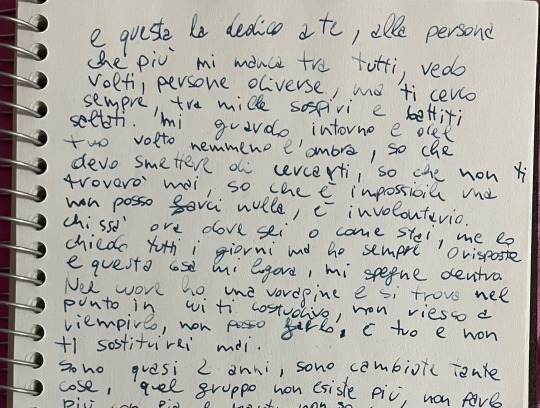 e questa la dedico a te, alla persona
che più mi manca tra tutti, vedo
volti, persone diverse, ma ti cerco
sempre, tra mille sospiri e battiti
saltati. mi guardo intorno e del
tuo volto nemmeno l'ombra, so che
devo smettere di cercarti, so che non ti
troverò mai, so che è impossibile ma
non posso farci nulla, è involontario.
chissà ora dove sei o come stai, me lo
chiedo tutti i giorni ma ho sempre 0 risposte
e questa cosa mi logora, mi spegne dentro
Nel cuore ho una voragine e si trova nel
punto in cui ti costudivo, non riesco a
riempirlo, non posso farlo, è tuo e non
ti sostituirei mai.
sono quasi 2 anni, sono cambiate tante
cose, quel gruppo non esiste più, non parlo
più con